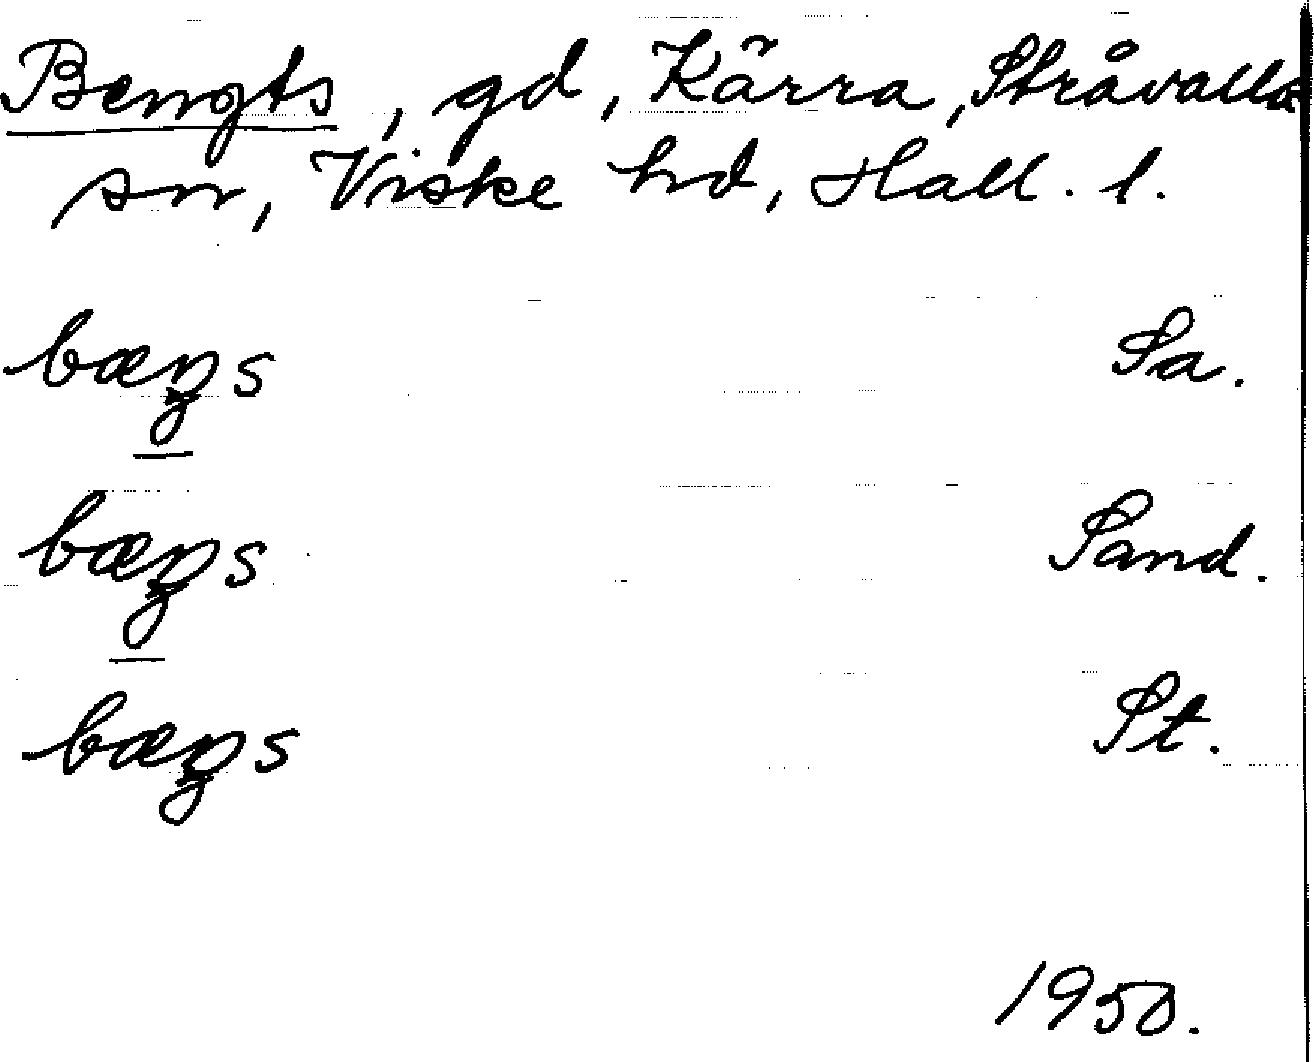 Bengts, gd, Kärra, Stråvalla
sn, Viske hd, Hall. l.
bæŋs Sa.
bæŋs Sand.
bæŋs St.
1950.